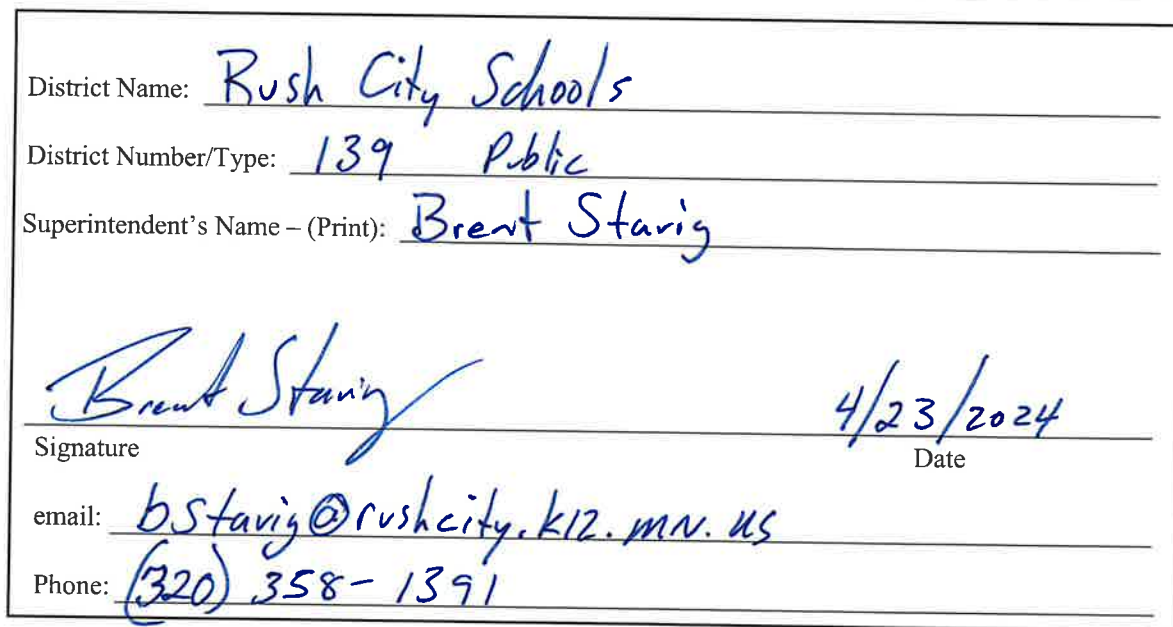 District Name: Rush City Schools
District Number/Type: 139 Public
Superintendent's Name – (Print): Brent Stavig
Brent Stavig 4/23/2024
Signature Date
email: bstavig@rushcity.k12.mn.us
Phone: (320) 358-1391